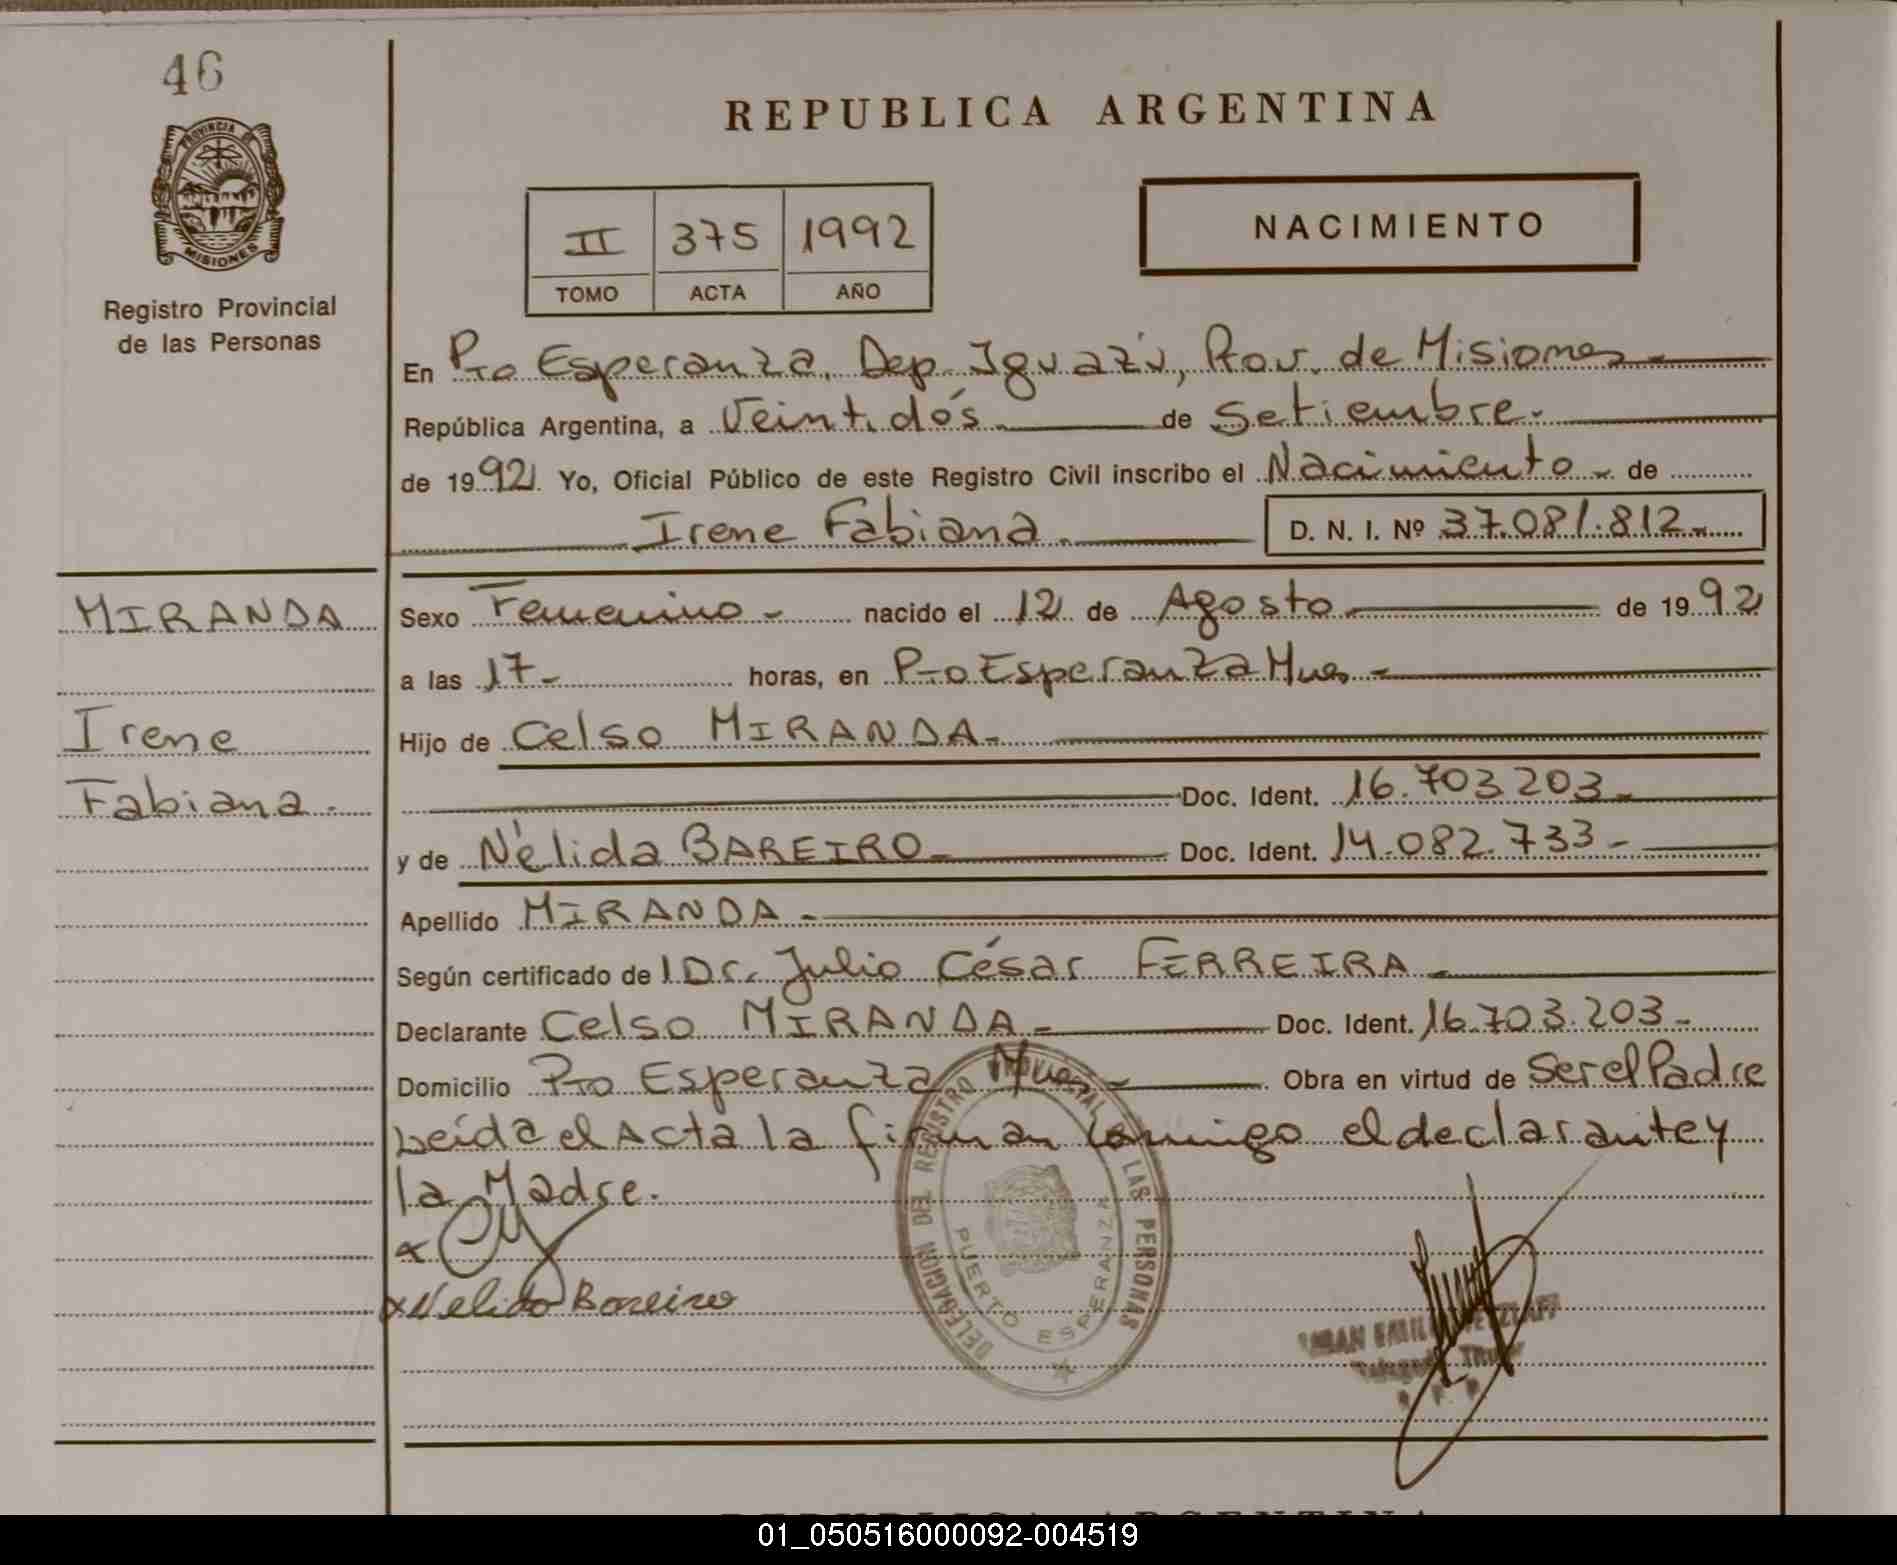 46
PROVINCIA DE
MISIONES
Registro Provincial
de las Personas
REPUBLICA ARGENTINA
II 375 1992
TOMO ACTA AÑO
NACIMIENTO
En Pto Esperanza, Dep. Iguazú, Prov. de Misiones
República Argentina, a Veintidós de Setiembre.
de 1992 Yo, Oficial Público de este Registro Civil inscribo el Nacimiento de
Irene Fabiana. D. N. I. Nº 37.081.812
MIRANDA
Irene
Fabiana.
Sexo Femenino nacido el 12 de Agosto de 1992
a las 17 horas, en Pto Esperanza Mnes
Hijo de Celso MIRANDA
Doc. Ident. 16.703203
y de Nélida BAREIRO Doc. Ident. 14.082.733
Apellido MIRANDA
Según certificado del Dr. Julio César FERREIRA
Declarante Celso MIRANDA Doc. Ident. 16.703.203
Domicilio Pto Esperanza Mnes Obra en virtud de Ser el Padre
Leída el Acta la firman conmigo el declarante y
la Madre.
x
x Nelida Boreiro
DELEGACION DEL REGISTRO PROVINCIAL DE LAS PERSONAS
PUERTO ESPERANZA
Titular
REPUBLICA ARGENTINA
01_050516000092-004519